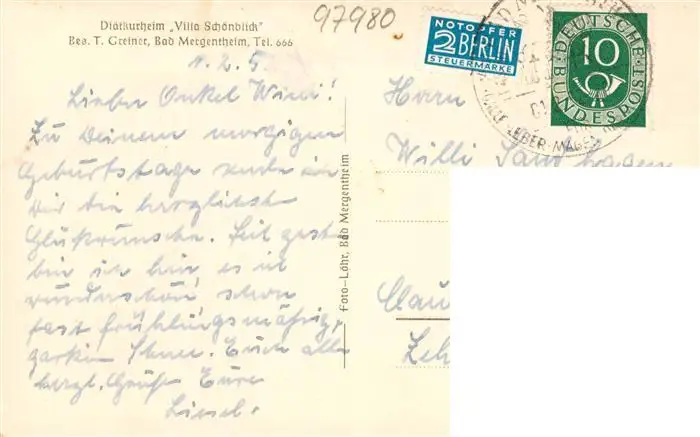 Diätkurheim „Villa Schönblick"
Bes. T. Greiner, Bad Mergentheim, Tel. 666
97980
NOTOPFER
2 BERLIN
STEUERMARKE
DEUTSCHE
BUNDESPOST
10
LEBER-MAGEN
1.2.5
Lieber Onkel Willi!
Zu Deinem morgigen
Geburtstage sende ich
Dir die herzlichsten
Glükwünsche. Seit gestern
bin ich hier, es ist
wunderschön, schon
fast frühlingsmäßig,
gar kein Schnee. Euch allen
herzl. Grüße Eure
Liesel.
Foto-Löhr, Bad Mergentheim
Herrn
Willi